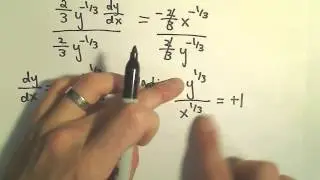 2/3 y^-1/3 dy/dx = -2/3 x^-1/3
2/3 y^-1/3 2/3 y^-1/3
dy/dx = y^1/3 / x^1/3 = +1